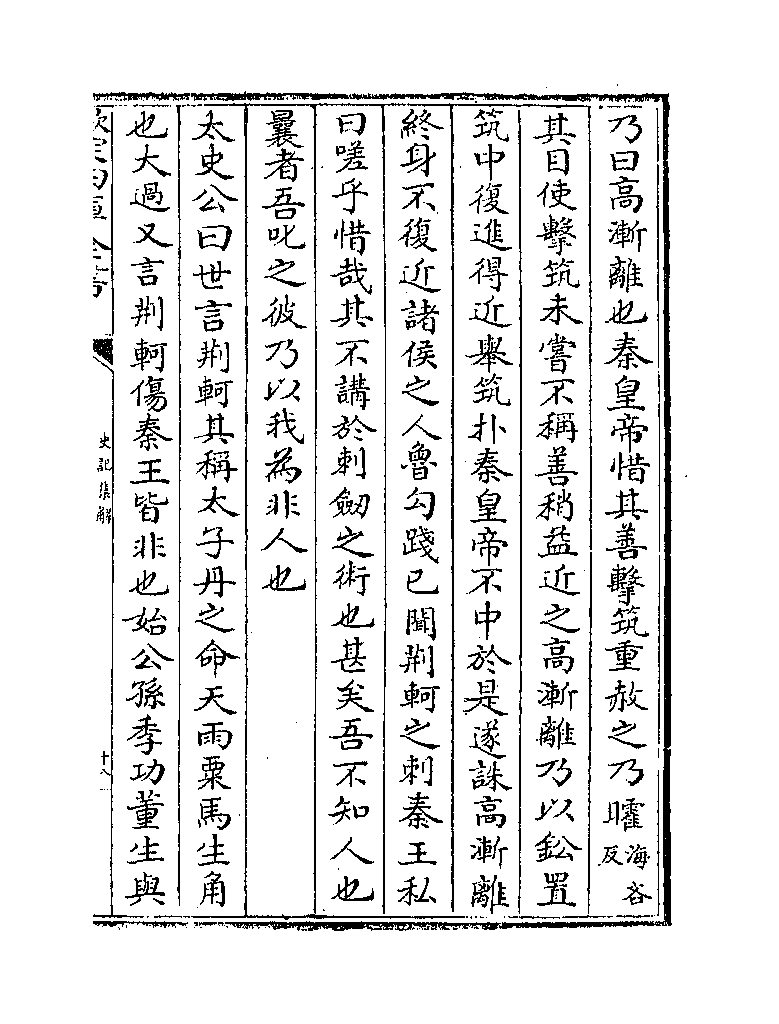 乃曰高漸離也秦皇帝惜其善擊筑重赦之乃矐海各反
其目使擊筑未嘗不稱善稍益近之高漸離乃以鈆置
筑中復進得近舉筑扑秦皇帝不中於是遂誅高漸離
終身不復近諸侯之人魯勾踐已聞荆軻之刺秦王私
曰嗟乎惜哉其不講於刺劒之術也甚矣吾不知人也
曩者吾叱之彼乃以我為非人也
太史公曰世言荆軻其稱太子丹之命天雨粟馬生角
也大過又言荆軻傷秦王皆非也始公孫季功董生與
欽定四庫全書
史記集解
十八